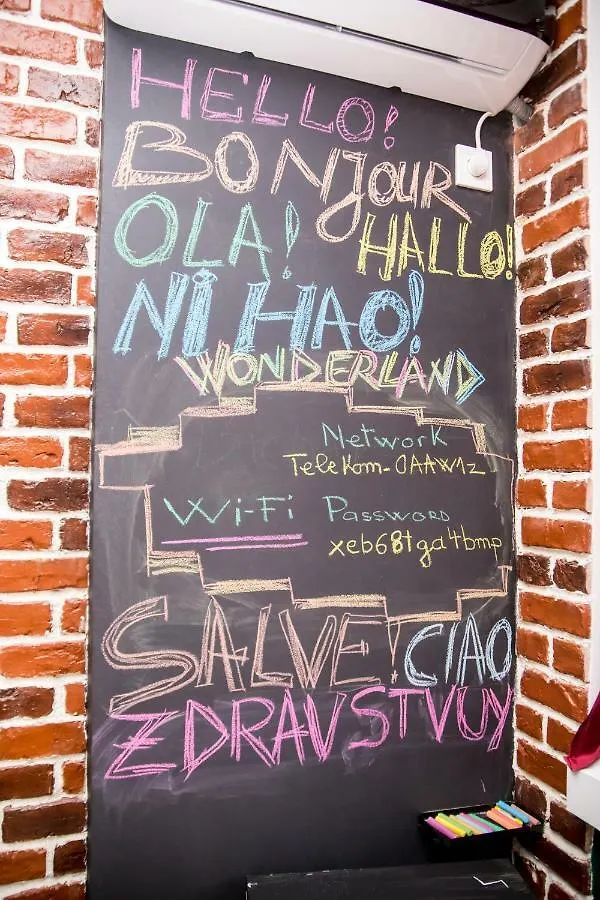 HELLO!
BONJOUR
OLA! HALLO!
NI HAO!
WONDERLAND
Network
Telekom-OAAW1z
Wi-Fi Password
xeb681ga4bmp
SALVE! CIAO
ZDRAVSTVUY